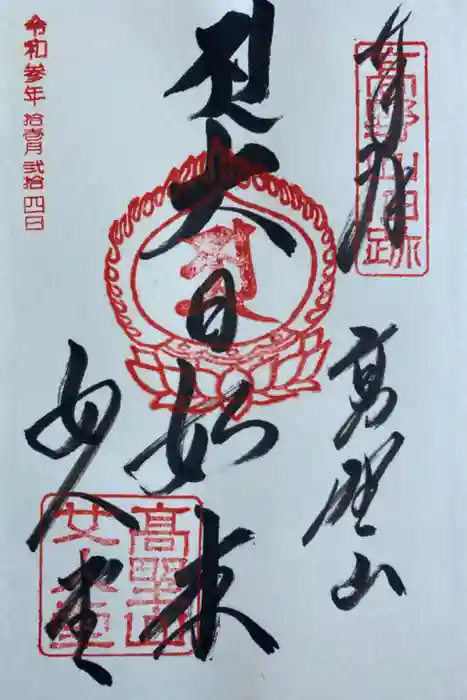 奉拝
高野山旧跡
高野山
大日如来
女人堂
高野山
女人堂
令和参年拾壹月弐拾四日